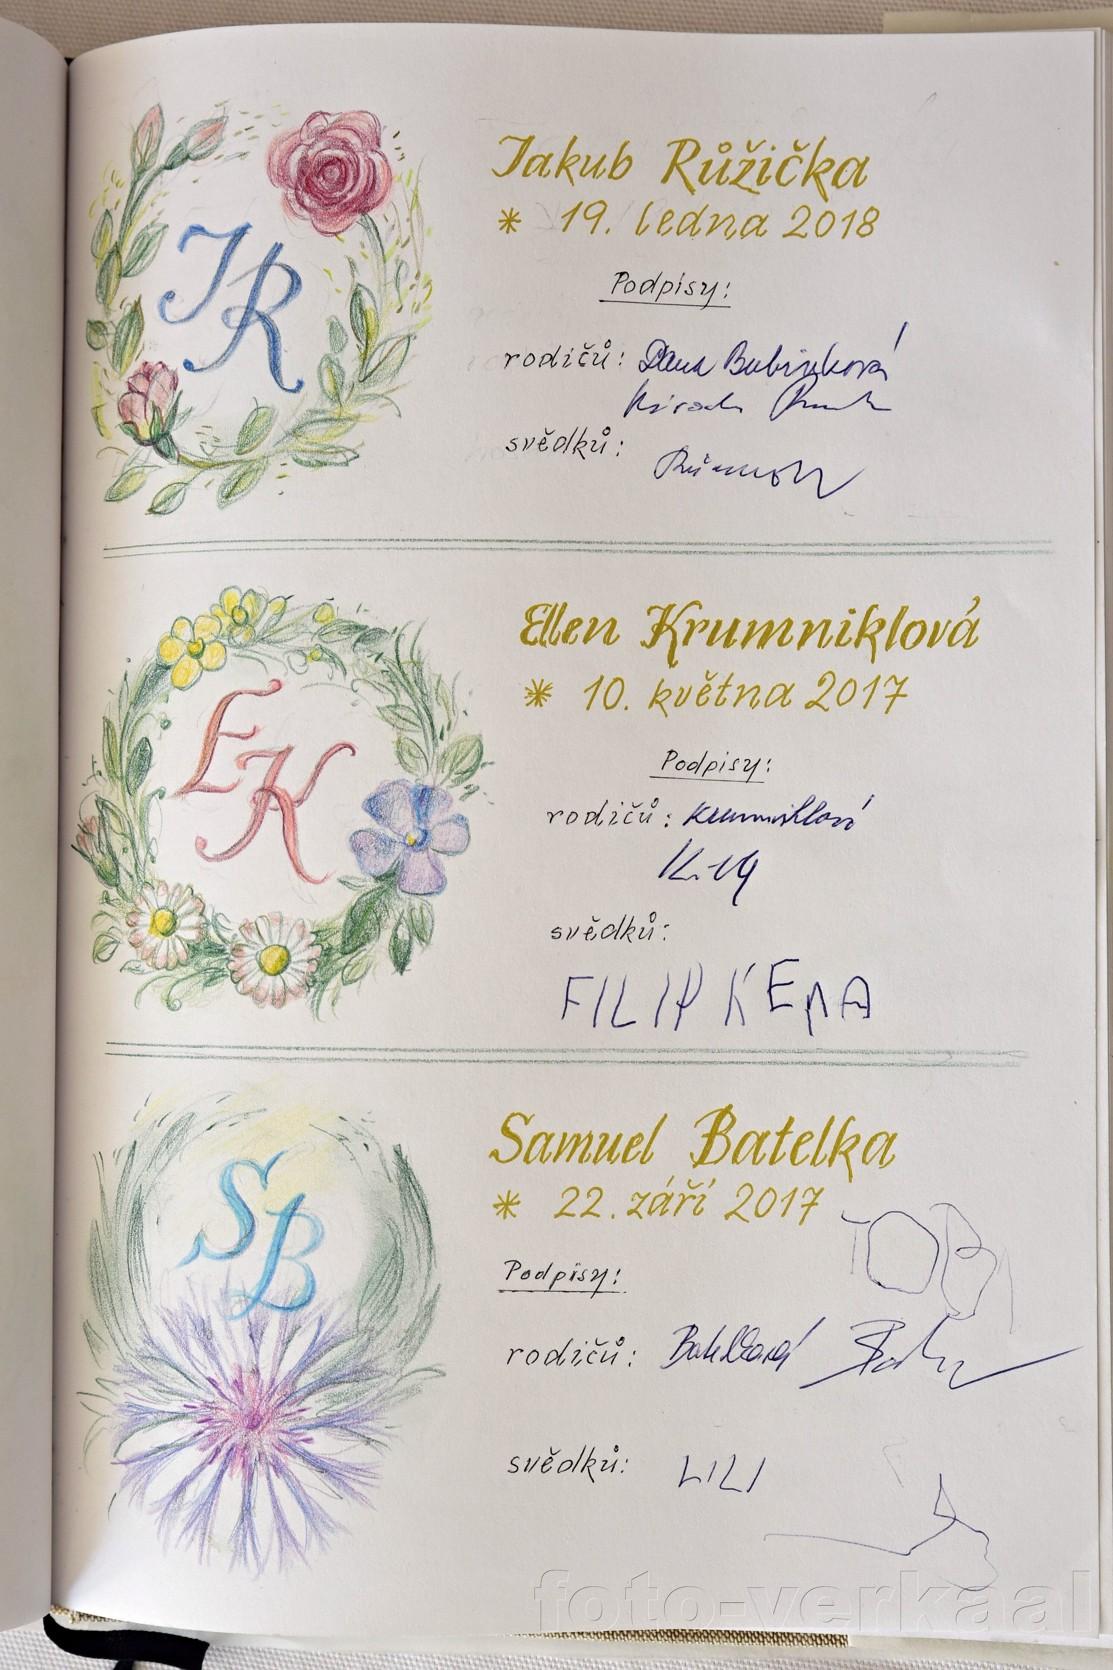 JR
Jakub Růžička
* 19. ledna 2018
Podpisy:
rodičů: Dana Bubiníková
svědků:
EK
Ellen Krumniklová
* 10. května 2017
Podpisy:
rodičů: Krumniklová
svědků:
FILIP KEMA
SB
Samuel Batelka
* 22. září 2017
TOBI
Podpisy:
rodičů: Batelková
svědků: LILI
foto-verkaal